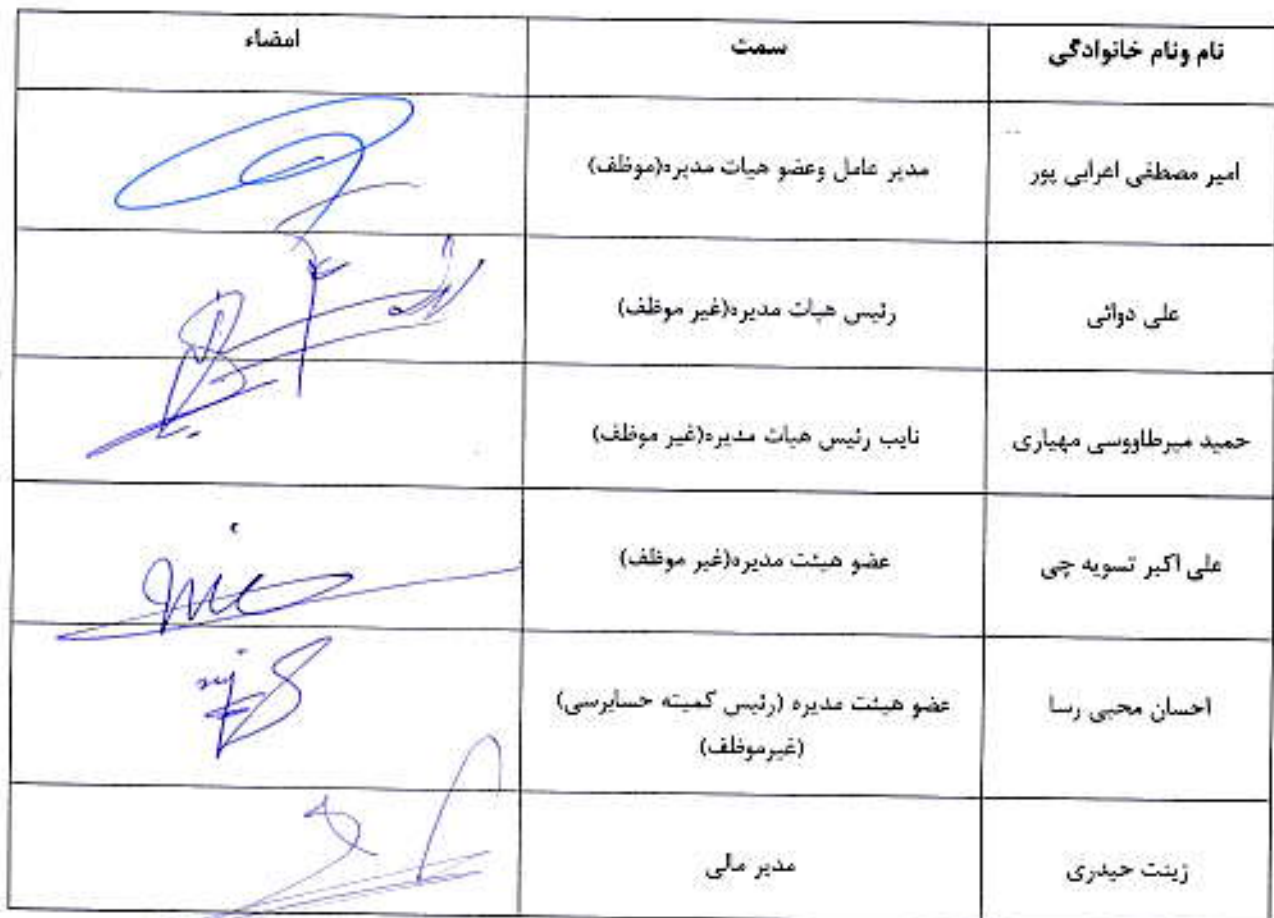 نام ونام خانوادگی سمت امضاء
امیر مصطفی اعرابی پور مدیر عامل وعضو هیات مدیره(موظف)
علی دوائی رئیس هیات مدیره(غیر موظف)
حمید میرطاووسی مهیاری نایب رئیس هیات مدیره(غیر موظف)
علی اکبر تسویه چی عضو هیئت مدیره(غیر موظف)
احسان محبی رسا عضو هیئت مدیره (رئیس کمیته حسابرسی)
(غیرموظف)
زینت حیدری مدیر مالی